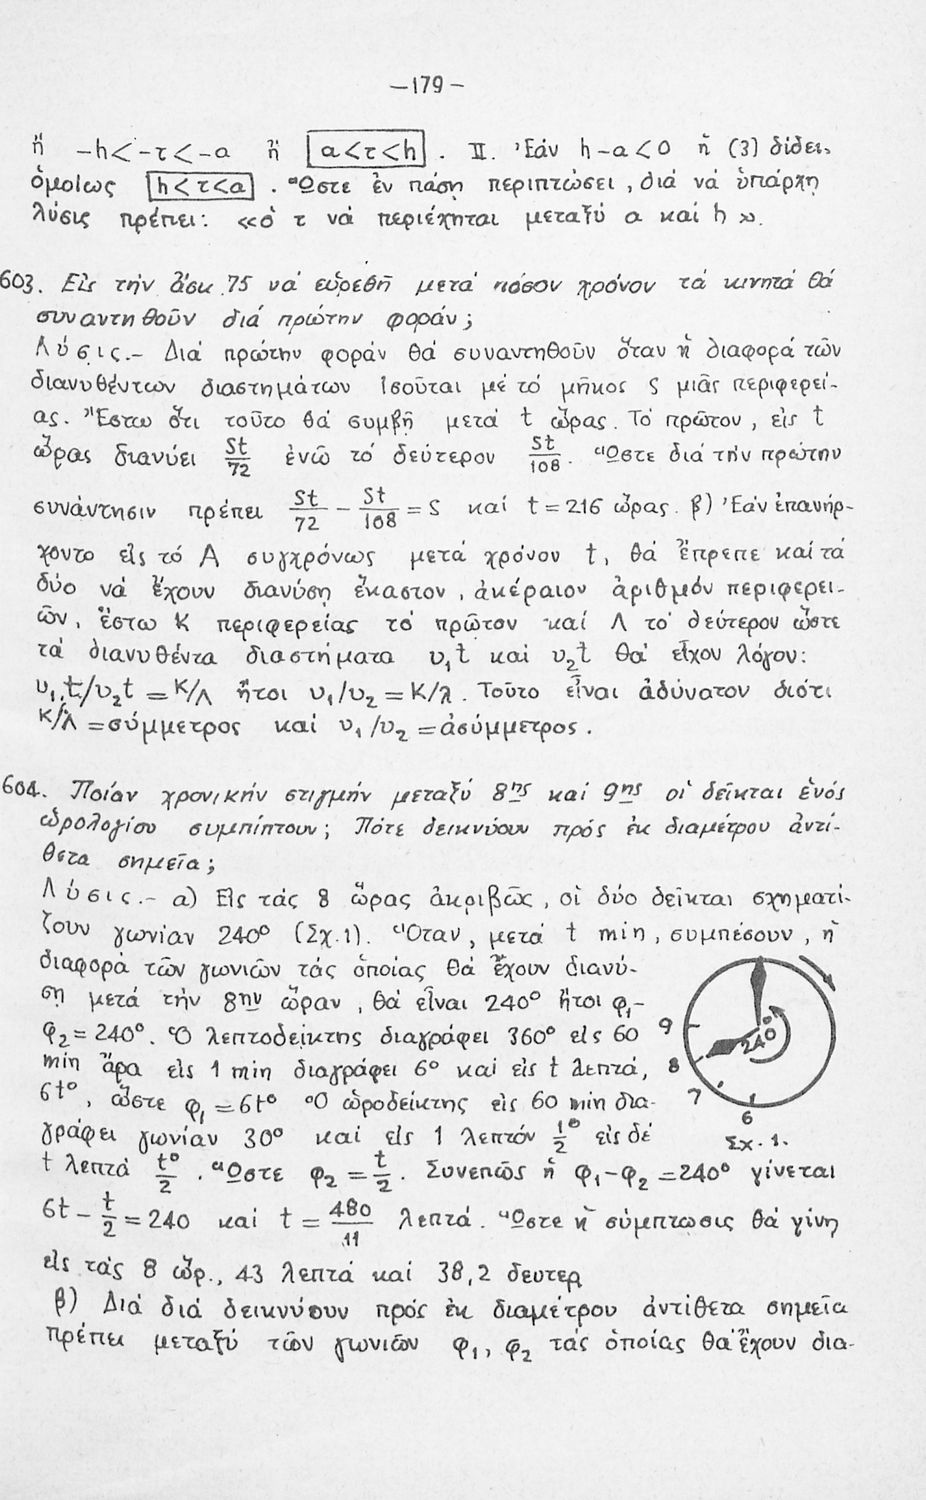 —179—
ἤ −h<−τ<−a ἤ a<τ<h. II. Ἐάν h−a<0 ἡ (3) δίδει,
ὁμοίως h<τ<a. Ὥστε ἐν πάσῃ περιπτώσει, διά νά ὑπάρχῃ
λύσις πρέπει: «ὁ τ νά περιέχηται μεταξύ a καί h».
603. Εἰς τήν ἄσκ. 75 νά εὑρεθῇ μετά πόσον χρόνον τά κινητά θά
συναντηθοῦν διά πρώτην φοράν;
Λύσις.- Διά πρώτην φοράν θά συναντηθοῦν ὅταν ἡ διαφορά τῶν
διανυθέντων διαστημάτων ἰσοῦται μέ τό μῆκος S μιᾶς περιφερεί-
ας. Ἔστω ὅτι τοῦτο θά συμβῇ μετά t ὥρας. Τό πρῶτον, εἰς t
ὥρας διανύει St/72 ἐνῶ τό δεύτερον St/108. Ὥστε διά τήν πρώτην
συνάντησιν πρέπει St/72 − St/108 = S καί t=216 ὥρας. β) Ἐάν ἐπανήρ-
χοντο εἰς τό A συγχρόνως μετά χρόνον t, θά ἔπρεπε καί τά
δύο νά ἔχουν διανύσῃ ἕκαστον, ἀκέραιον ἀριθμόν περιφερει-
ῶν, ἔστω K περιφερείας τό πρῶτον καί Λ τό δεύτερον ὥστε
τά διανυθέντα διαστήματα υ₁t καί υ₂t θά εἶχον λόγον:
υ₁t/υ₂t = K/Λ ἤτοι υ₁/υ₂ = K/λ. Τοῦτο εἶναι ἀδύνατον διότι
K/λ = σύμμετρος καί υ₁/υ₂ = ἀσύμμετρος.
604. Ποίαν χρονικήν στιγμήν μεταξύ 8ης καί 9ης οἱ δεῖκται ἑνός
ὡρολογίου συμπίπτουν; Πότε δεικνύουν πρός ἐκ διαμέτρου ἀντί-
θετα σημεῖα;
Λύσις.- α) Εἰς τάς 8 ὥρας ἀκριβῶς, οἱ δύο δεῖκται σχηματί-
ζουν γωνίαν 240° (Σχ.1). Ὅταν, μετά t min, συμπέσουν, ἡ
διαφορά τῶν γωνιῶν τάς ὁποίας θά ἔχουν διανύ-
σῃ μετά τήν 8ην ὥραν, θά εἶναι 240° ἤτοι φ₁−
φ₂=240°. Ὁ λεπτοδείκτης διαγράφει 360° εἰς 60
min ἄρα εἰς 1 min διαγράφει 6° καί εἰς t λεπτά,
6t°, ὥστε φ₁=6t° Ὁ ὡροδείκτης εἰς 60 min δια-
γράφει γωνίαν 30° καί εἰς 1 λεπτόν 1°/2 εἰς δέ
t λεπτά t°/2. Ὥστε φ₂ = t/2. Συνεπῶς ἡ φ₁−φ₂=240° γίνεται
6t − t/2 = 240 καί t = 480/11 λεπτά. Ὥστε ἡ σύμπτωσις θά γίνῃ
εἰς τάς 8 ὧρ., 43 λεπτά καί 38,2 δευτερ
β) Διά διά δεικνύουν πρός ἐκ διαμέτρου ἀντίθετα σημεῖα
πρέπει μεταξύ τῶν γωνιῶν φ₁, φ₂ τάς ὁποίας θά ἔχουν δια-
9
8
7
6
240°
Σχ. 1.